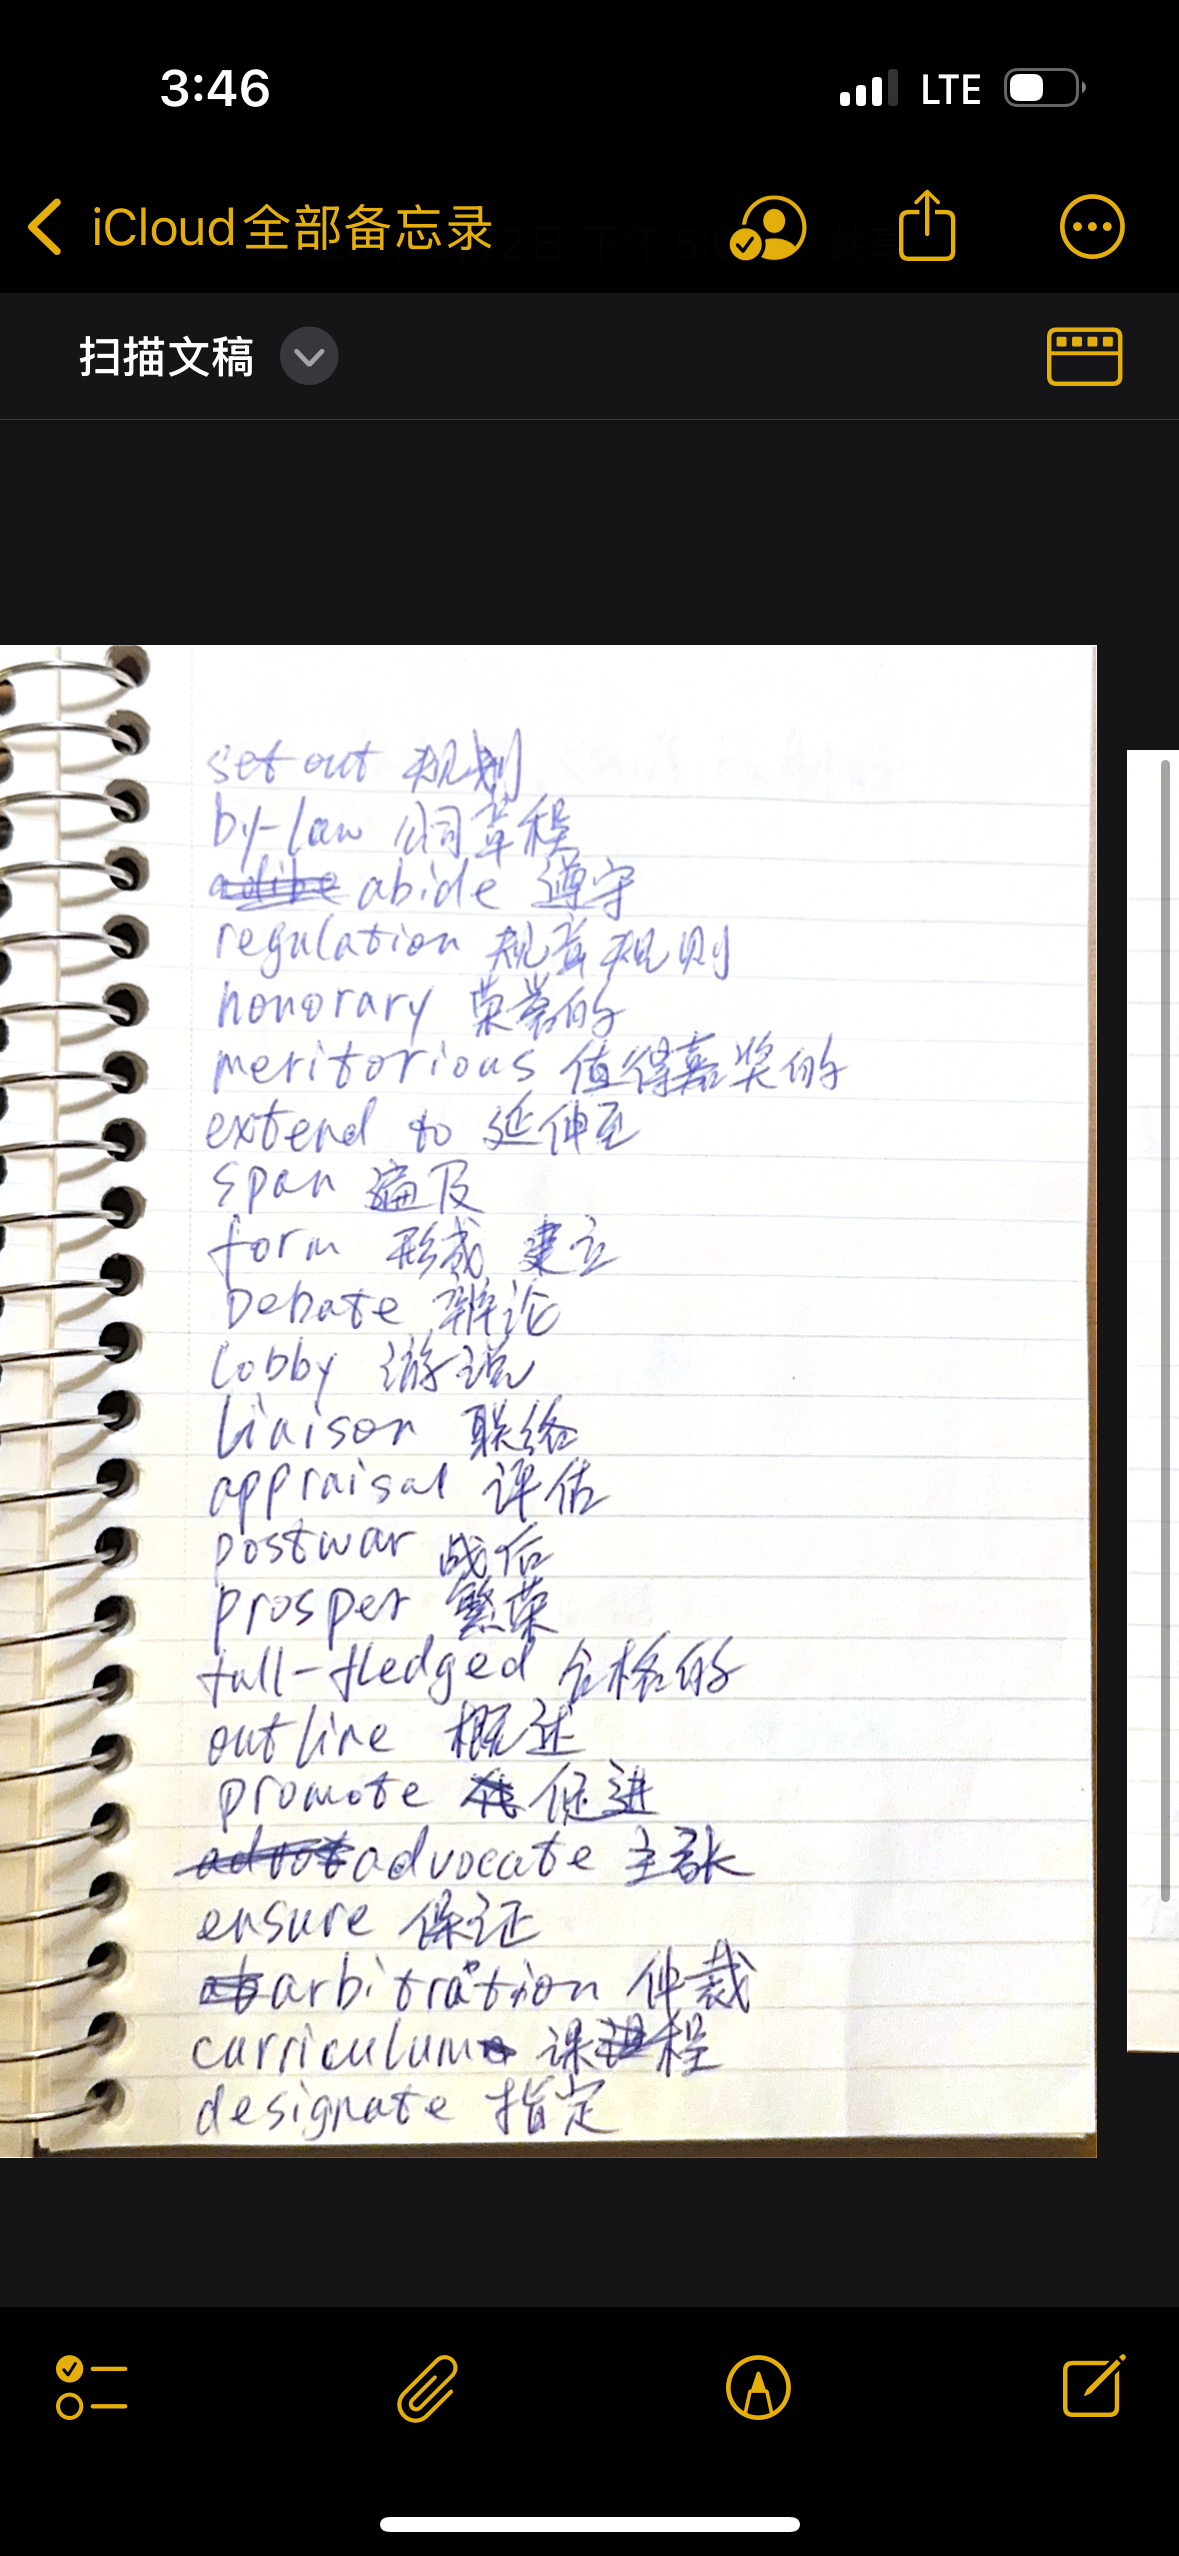 3:46 LTE
iCloud全部备忘录
扫描文稿
set out 规划
by-law 公司章程
abide 遵守
regulation 规章规则
honorary 荣誉的
meritorious 值得嘉奖的
extend to 延伸至
span 遍及
form 形成 建立
Debate 辩论
lobby 游说
liaison 联络
appraisal 评估
postwar 战后
prosper 繁荣
full-fledged 合格的
outline 概述
promote 促进
advocate 主张
ensure 保证
arbitration 仲裁
curriculum 课程
designate 指定